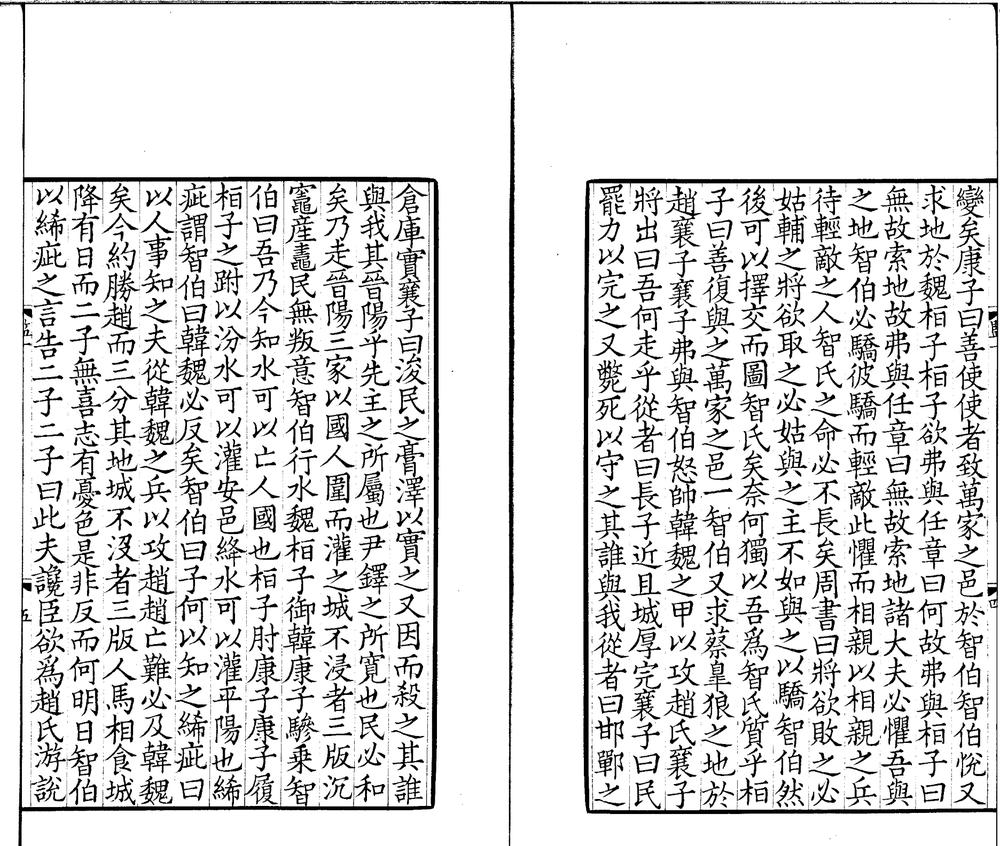 變矣康子曰善使使者致萬家之邑於智伯智伯悅又
求地於魏桓子桓子欲弗與任章曰何故弗與桓子曰
無故索地故弗與任章曰無故索地諸大夫必懼吾與
之地智伯必驕彼驕而輕敵此懼而相親以相親之兵
待輕敵之人智氏之命必不長矣周書曰將欲敗之必
姑輔之將欲取之必姑與之主不如與之以驕智伯然
後可以擇交而圖智氏矣奈何獨以吾爲智氏質乎桓
子曰善復與之萬家之邑一智伯又求蔡皇狼之地於
趙襄子襄子弗與智伯怒帥韓魏之甲以攻趙氏襄子
將出曰吾何走乎從者曰長子近且城厚完襄子曰民
罷力以完之又斃死以守之其誰與我從者曰邯鄲之
四
倉庫實襄子曰浚民之膏澤以實之又因而殺之其誰
與我其晉陽乎先主之所屬也尹鐸之所寬也民必和
矣乃走晉陽三家以國人圍而灌之城不浸者三版沉
竈産鼃民無叛意智伯行水魏桓子御韓康子驂乘智
伯曰吾乃今知水可以亡人國也桓子肘康子康子履
桓子之跗以汾水可以灌安邑絳水可以灌平陽也絺
疵謂智伯曰韓魏必反矣智伯曰子何以知之絺疵曰
以人事知之夫從韓魏之兵以攻趙趙亡難必及韓魏
矣今約勝趙而三分其地城不沒者三版人馬相食城
降有日而二子無喜志有憂色是非反而何明日智伯
以絺疵之言告二子二子曰此夫讒臣欲爲趙氏游說
五